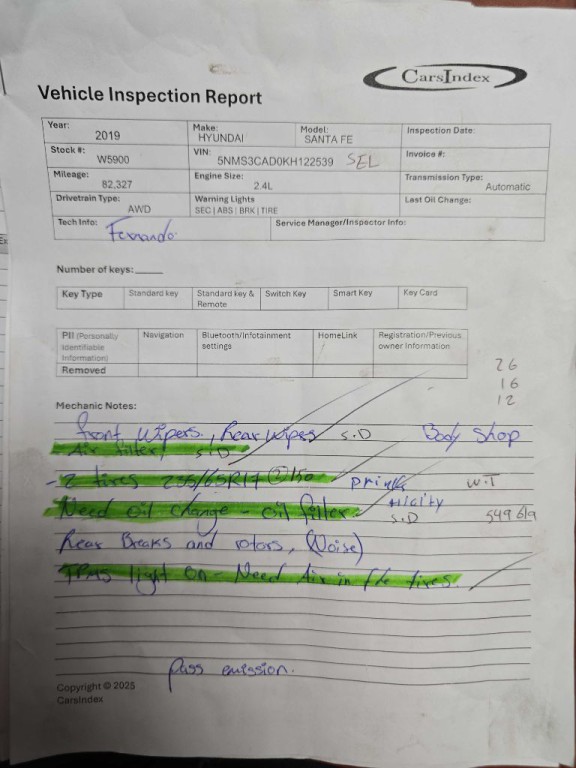 CarsIndex
Vehicle Inspection Report
Year: 2019 Make: HYUNDAI Model: SANTA FE Inspection Date:
Stock #: W5900 VIN: 5NMS3CAD0KH122539 SEL Invoice #:
Mileage: 82,327 Engine Size: 2.4L Transmission Type: Automatic
Drivetrain Type: AWD Warning Lights SEC | ABS | BRK | TIRE Last Oil Change:
Tech Info: Fernando Service Manager/Inspector Info:
Number of keys:
Key Type Standard key Standard key & Remote Switch Key Smart Key Key Card
PII (Personally Identifiable Information) Navigation Bluetooth/Infotainment settings HomeLink Registration/Previous owner Information
Removed
26
16
12
Mechanic Notes:
front wipers, Rear wipers S.D Body shop
- Air filter S.D
- 2 tires 235/65R17 @150 W.T
Need oil change - oil filter. S.D 549 619
Rear Breaks and rotors, (Noise)
TPMS light on - Need Air in the tires
Pass emission.
Copyright © 2025
CarsIndex